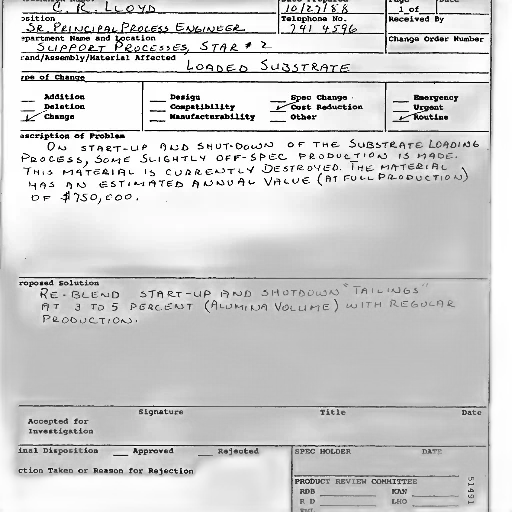 C. R. LLOYD 10/27/88 1 of
Position Telephone No. Received By
SR. PRINCIPAL PROCESS ENGINEER 741 4596
epartment Name and Location Change Order Number
SUPPORT PROCESSES, STAR #2
rand/Assembly/Material Affected LOADED SUBSTRATE
ype of Change
Addition Design Spec Change Emergency
Deletion Compatibility ✓ Cost Reduction Urgent
✓ Change Manufacturability Other ✓ Routine
escription of Problem
ON START-UP AND SHUT-DOWN OF THE SUBSTRATE LOADING
PROCESS, SOME SLIGHTLY OFF-SPEC PRODUCTION IS MADE.
THIS MATERIAL IS CURRENTLY DESTROYED. THE MATERIAL
HAS AN ESTIMATED ANNUAL VALUE (AT FULL PRODUCTION)
OF $750,000.
roposed Solution
RE-BLEND START-UP AND SHUTDOWN "TAILINGS"
AT 3 TO 5 PERCENT (ALUMINA VOLUME) WITH REGULAR
PRODUCTION.
Signature Title Date
Accepted for
Investigation
inal Disposition Approved Rejected SPEC HOLDER DATE
ction Taken or Reason for Rejection
PRODUCT REVIEW COMMITTEE
RDB KAN
R D LHO
51491